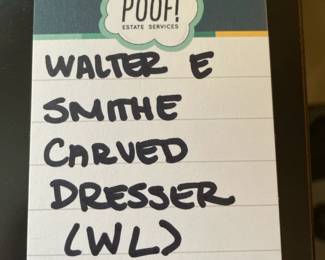 POOF!
ESTATE SERVICES
WALTER E
SMITHE
CARVED
DRESSER
(WL)